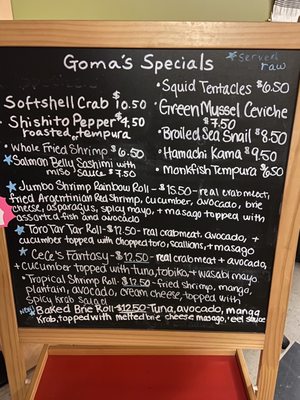 Goma's Specials
* Served raw
Softshell Crab $10.50
• Shishito Pepper $4.50
roasted or tempura
• Whole Fried Shrimp $6.50
Salmon Belly Sashimi with
miso sauce $7.50
• Squid Tentacles $6.50
• Green Mussel Ceviche
$7.50
• Broiled Sea Snail $8.50
• Hamachi Kama $9.50
• Monkfish Tempura $6.50
• Jumbo Shrimp Rainbow Roll - $15.50 - real crab meat,
fried Argentinian Red Shrimp, cucumber, avocado, brie
cheese, asparagus, spicy mayo, + masago topped with
assorted fish and avocado
Toro Tar Tar Roll - $12.50 - real crab meat, avocado, +
cucumber topped with chopped toro, scallions, + masago
CeCe's Fantasy - $12.50 - real crab meat + avocado,
+ cucumber topped with tuna, tobiko, + wasabi mayo
• Tropical Shrimp Roll - $12.50 - fried shrimp, mango,
plantain, avocado, cream cheese, topped with
spicy krab salad
Baked Brie Roll - $12.50 - Tuna, avocado, mango
Krab, topped with melted brie cheese masago, + eel sauce